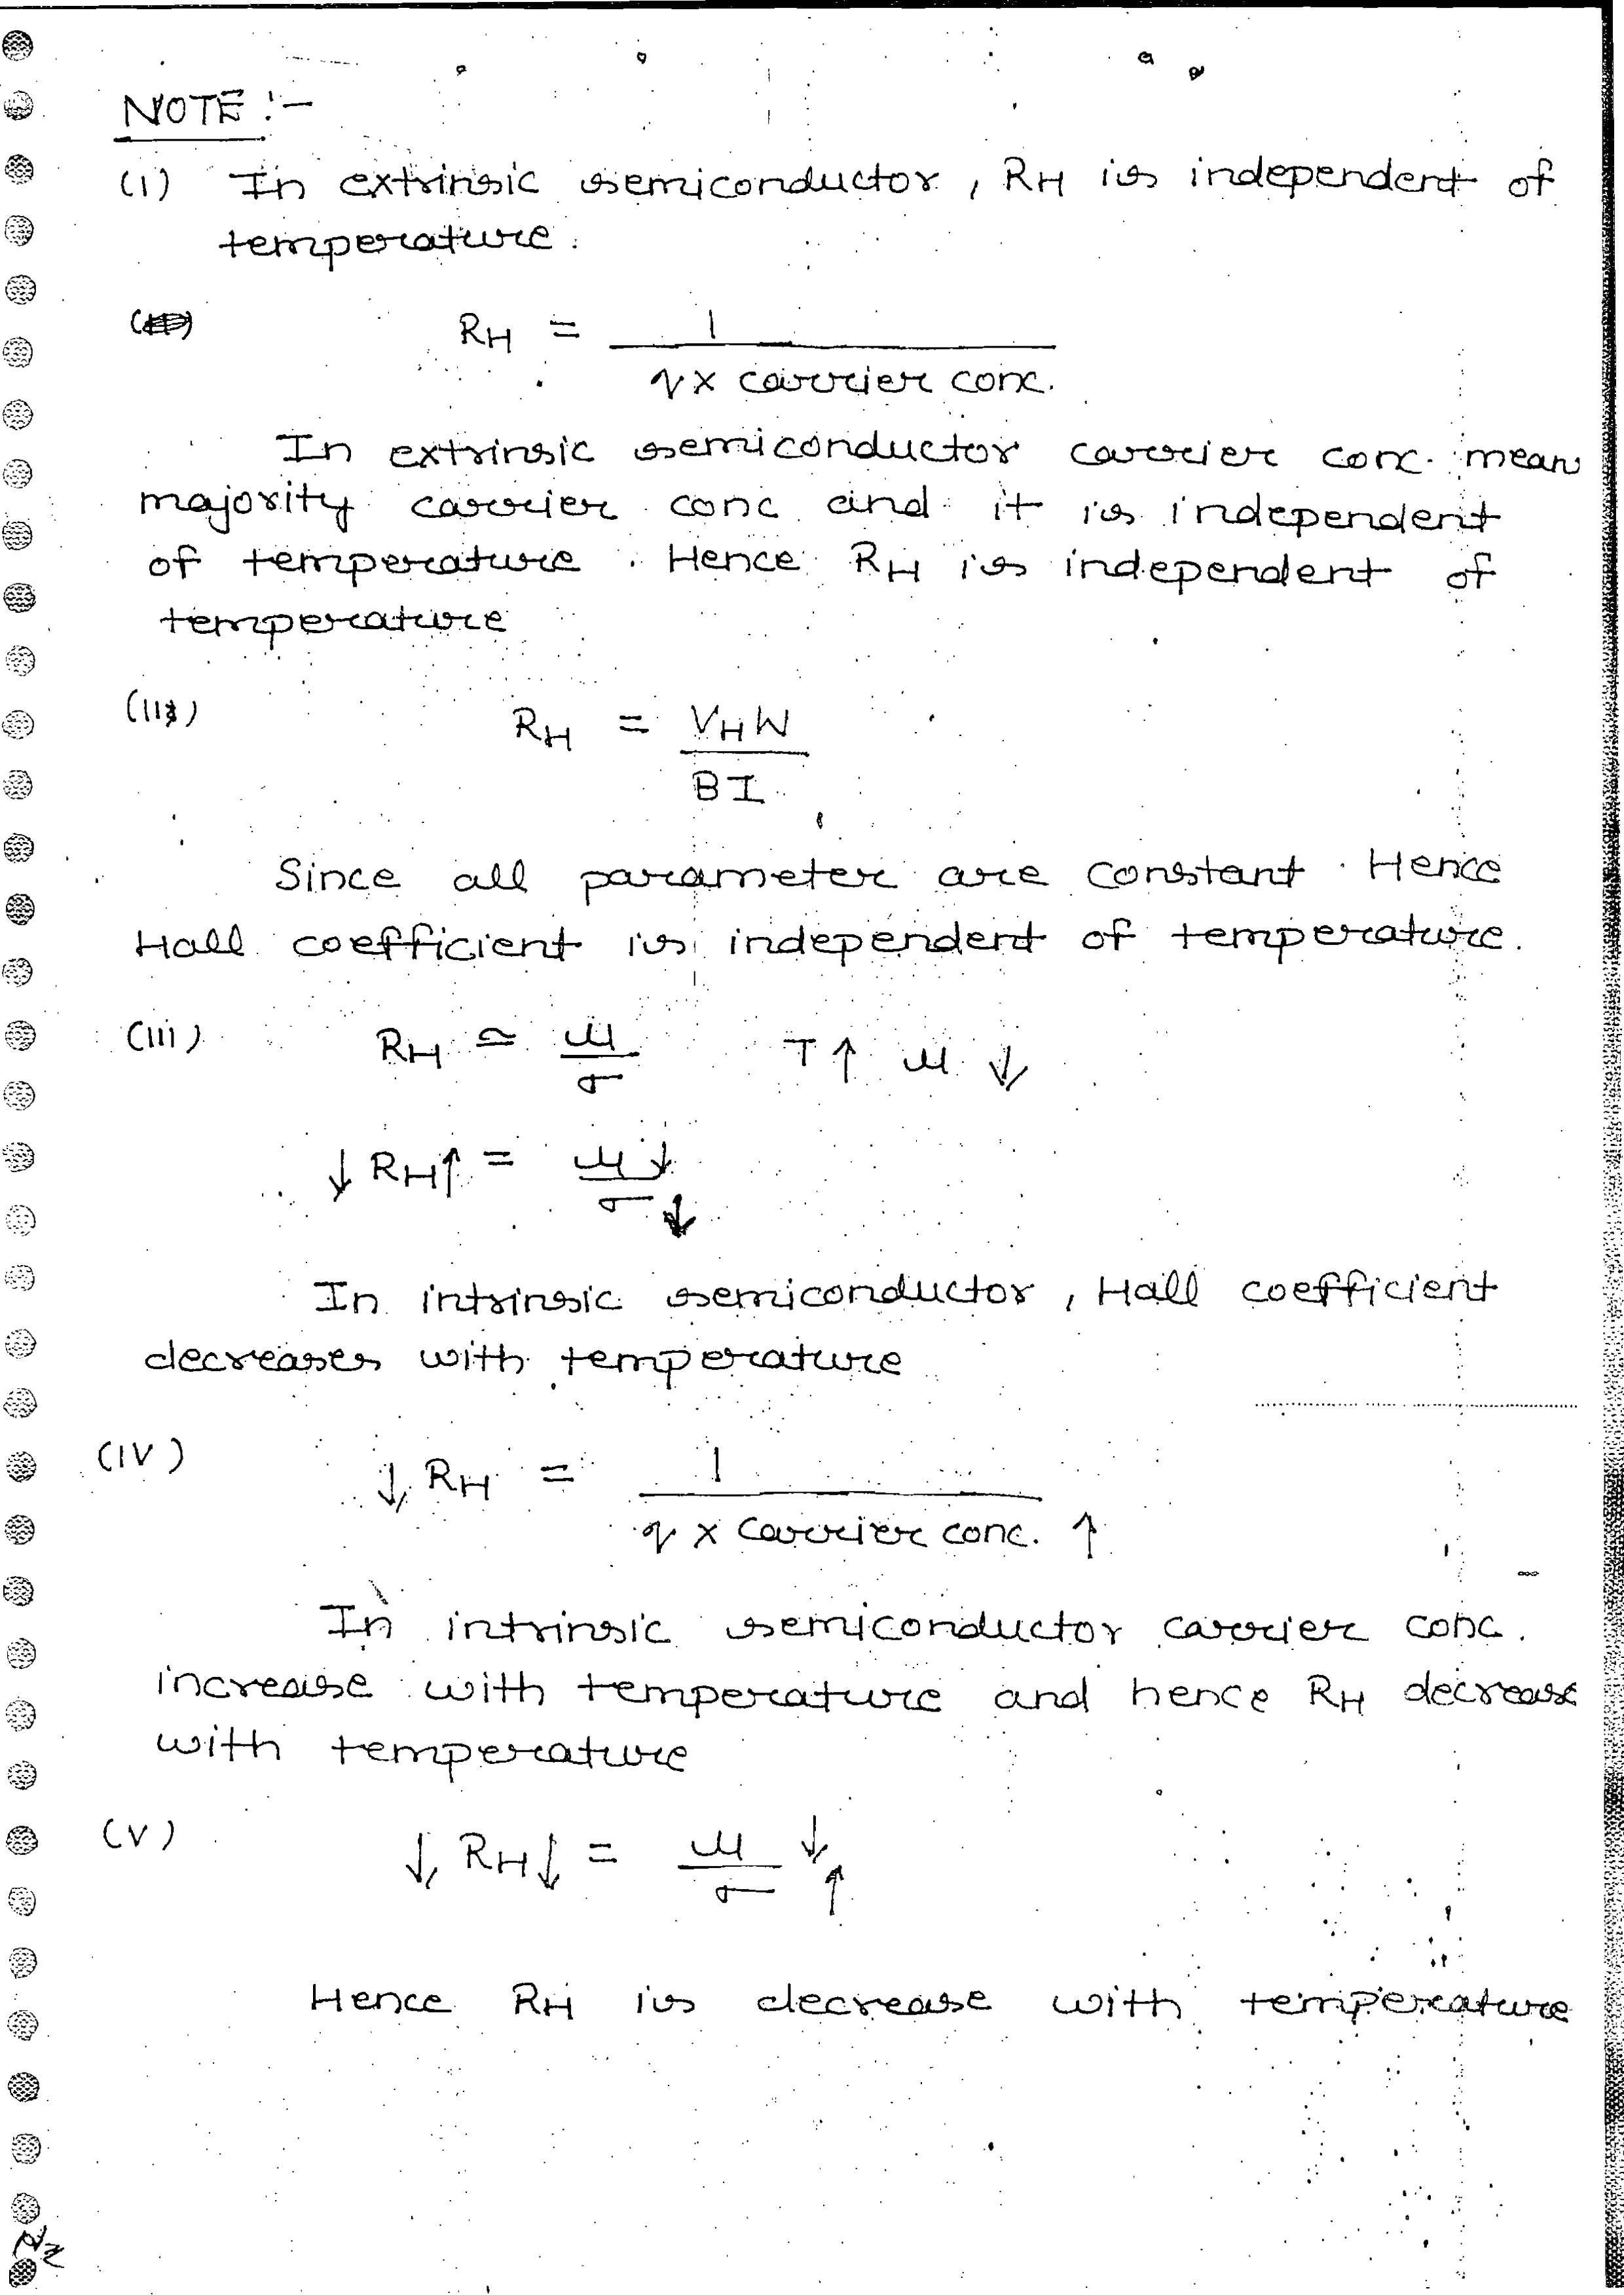 NOTE :-
(i) In extrinsic semiconductor, RH is independent of
temperature.
RH = 1 / q x carrier conc.
In extrinsic semiconductor carrier conc. mean
majority carrier conc and it is independent
of temperature. Hence RH is independent of
temperature
(ii) RH = VHW / BI
Since all parameter are constant. Hence
Hall coefficient is independent of temperature.
(iii) RH ≃ μ / σ T↑ μ ↓
↓ RH↑ = μ↓ / σ↓
In intrinsic semiconductor, Hall coefficient
decreases with temperature
(iv) ↓ RH = 1 / q x carrier conc. ↑
In intrinsic semiconductor carrier conc.
increase with temperature and hence RH decrease
with temperature
(v) ↓ RH↓ = μ ↓ / σ ↑
Hence RH is decrease with temperature